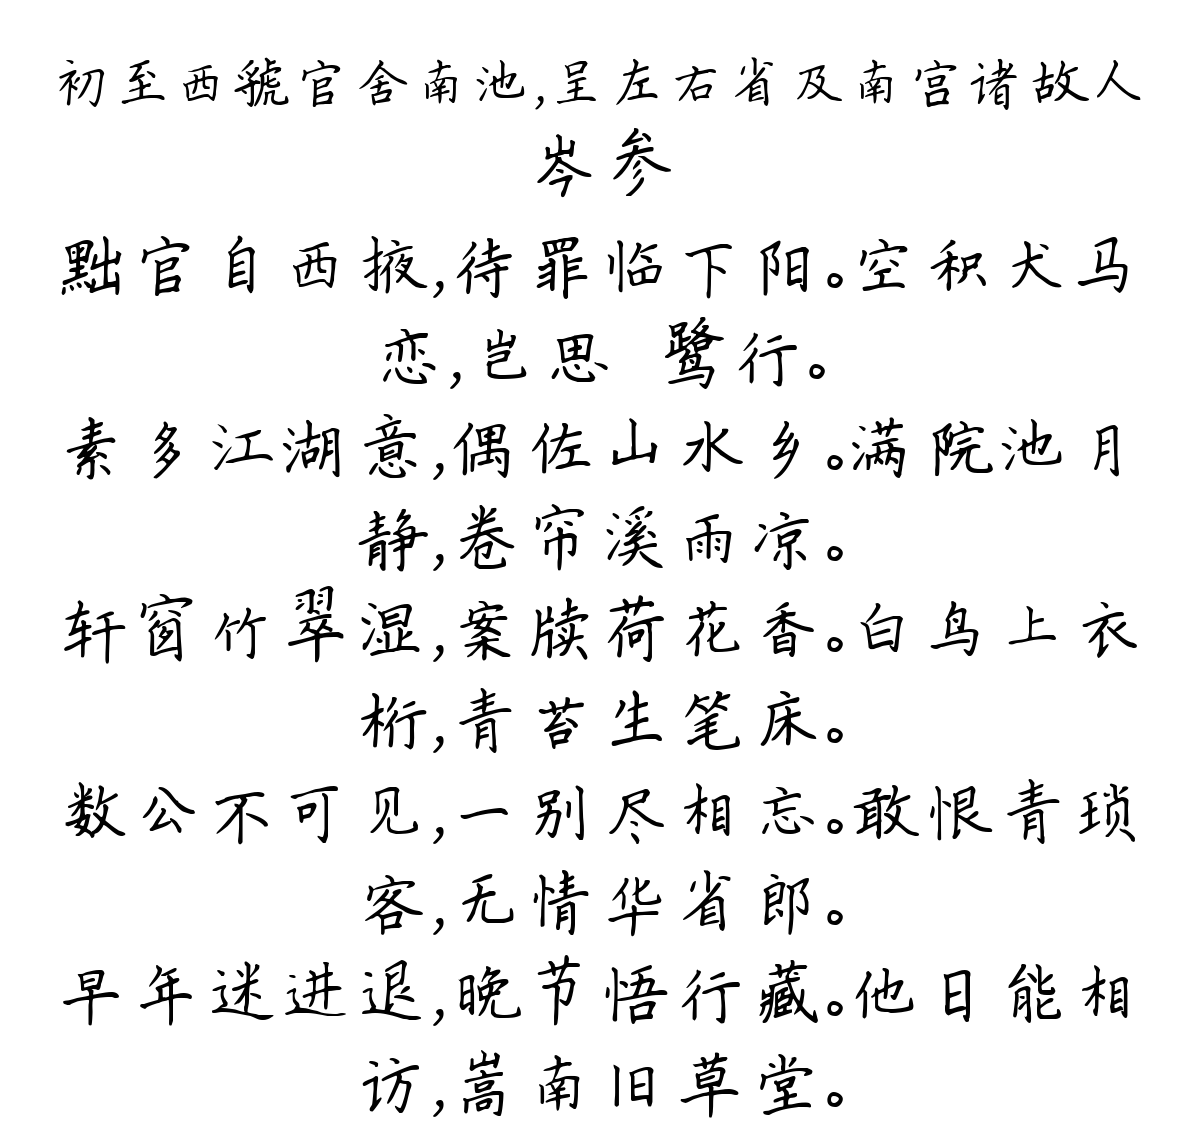 初至西虢官舍南池,呈左右省及南宫诸故人
岑参
黜官自西掖,待罪临下阳。空积犬马
恋,岂思 鹭行。
素多江湖意,偶佐山水乡。满院池月
静,卷帘溪雨凉。
轩窗竹翠湿,案牍荷花香。白鸟上衣
桁,青苔生笔床。
数公不可见,一别尽相忘。敢恨青琐
客,无情华省郎。
早年迷进退,晚节悟行藏。他日能相
访,嵩南旧草堂。